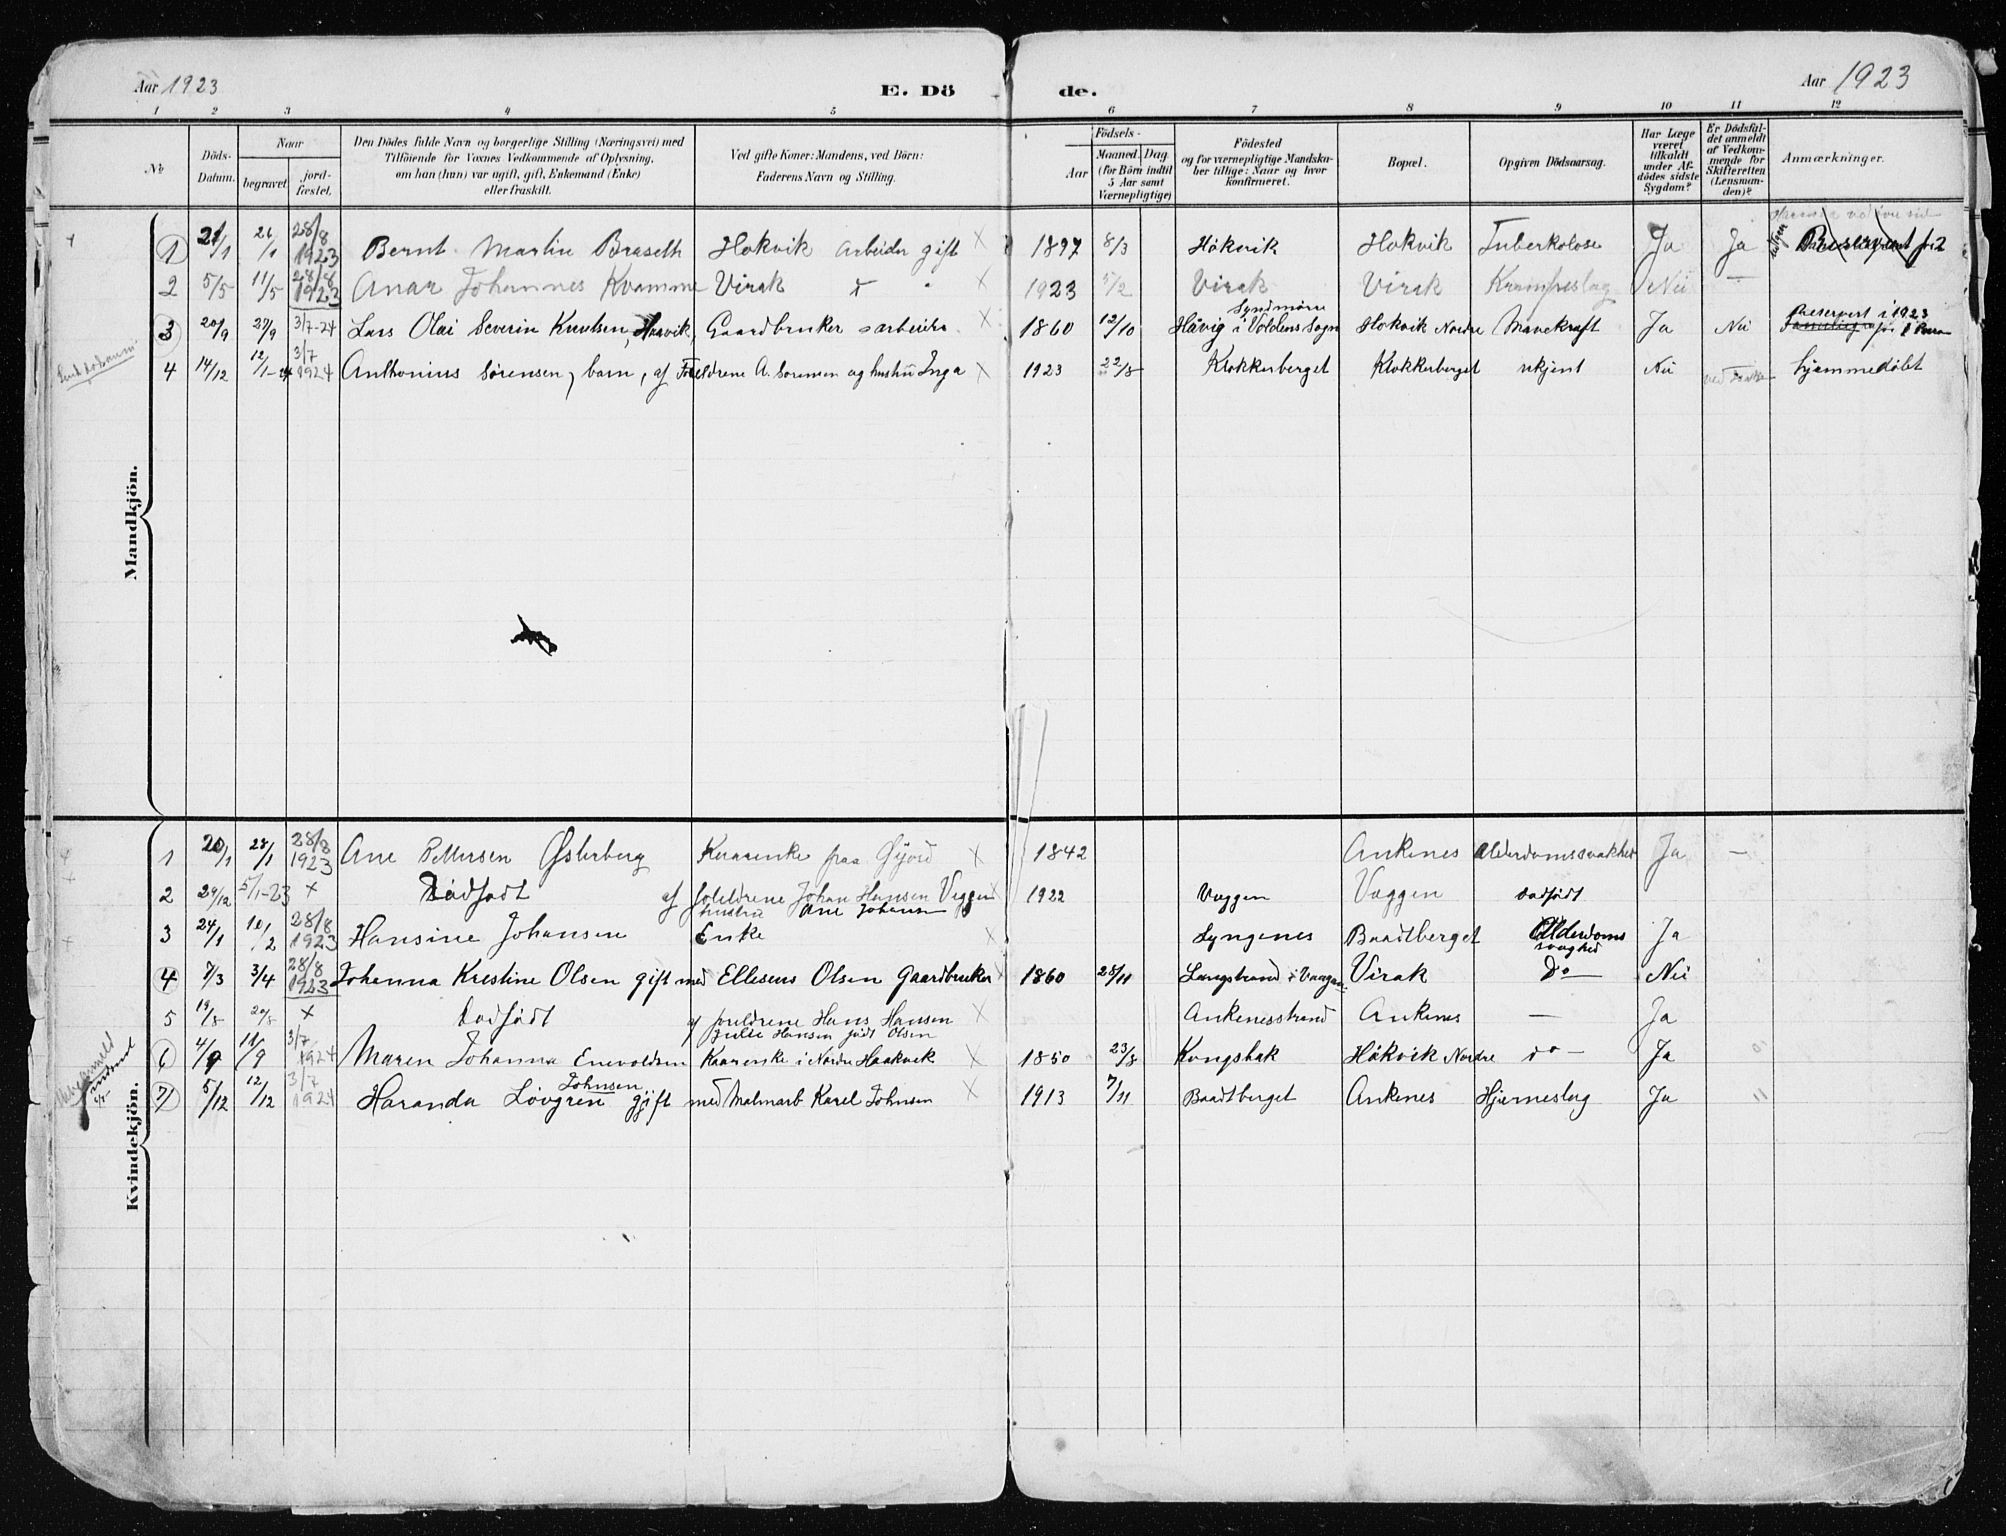 Aar 1923
E. Dö
de.
Aar 1923
1 2 3 4 5 6 7 8 9 10 11 12
No
Döds-Datum.
Naar
begravet.
jord-fæstet.
Den Dödes fulde Navn og borgerlige Stilling (Næringsvei) med
Tilföiende for Voxnes Vedkommende af Oplysning,
om han (hun) var ugift, gift, Enkemand (Enke)
eller fraskilt.
Ved gifte Koner: Mandens, ved Börn:
Faderens Navn og Stilling.
Födsels-
Aar
Maaned. Dag.
(for Börn indtil
5 Aar samt
Værnepligtige)
Födested
og for værnepligtige Mandska-
ber tillige: Naar og hvor
konfirmeret.
Bopæl.
Opgiven Dödsaarsag.
Har Læge
været
tilkaldt
under Af-
dödes sidste
Sygdom?
Er Dödsfal-
det anmeldt
af Vedkom-
mende for
Skifteretten
(Lensman-
den)?
Anmærkninger.
Mandkjön.
1 21/1 26/1 28/8 1923 Bernt Martin Braseth Hokvik Arbeider gift × 1897 8/3 Håkvik Hokvik Tuberkolose Ja Ja
2 5/5 11/5 28/8 1923 Anar Johannes Kvamme Virak × 1923 5/2 Virak Virak Krampeslag Nei —
3 20/9 27/9 3/7-24 Lars Olai Severin Knutsen, Haavik, Gaardbruker × 1860 12/10 Håvig i Voldens Sogn Søndmøre Hokvik Nordre Mavekræft Ja Nei Preservert i 1923
4 14/12 12/1-24 3/7 1924 Anthonius Sørensen, barn, af Foreldrene A. Sørensen og hustru Inga × 1923 22/8 Klokkerberget Klokkerberget ukjent Nei hjemmedøbt
Kvindekjön.
1 20/1 28/1 28/8 1923 Ane Pettersen Østerberg Kaarenke fraa × 1842 Ankenes Alderdomssvakhed Ja —
2 29/12 5/1-23 × Dødfødt af foreldrene Johan Hansen Veggen × 1922 Veggen Veggen Dødfødt
hustru Ane Johansen
3 24/1 10/2 28/8 1923 Hansine Johansen Enke × Lyngenes Baadtberget Alderdoms svaghed Ja
4 7/3 3/4 28/8 1923 Johanna Krestine Olsen gift med Elleseus Olsen Gaardbruker × 1860 28/11 Langstrand i Vaagan Virak Do — Nei
5 19/8 20/8 × Dødfødt af foreldrene Hans Hansen Ankenesstrand Ankenes — Ja
Hansen født Olsen
6 4/9 11/9 3/7 1924 Maren Johanna Enevoldsen Kaarenke i Nordre Haakvik 1850 23/8 Kongsbak Håkvik Nordre do — Ja
7 5/12 12/12 3/7 1924 Haranda Løvgren Johnsen gift med Malmarb Karel Johnsen × 1913 7/11 Baadtberget Ankenes Hjerneslag Ja